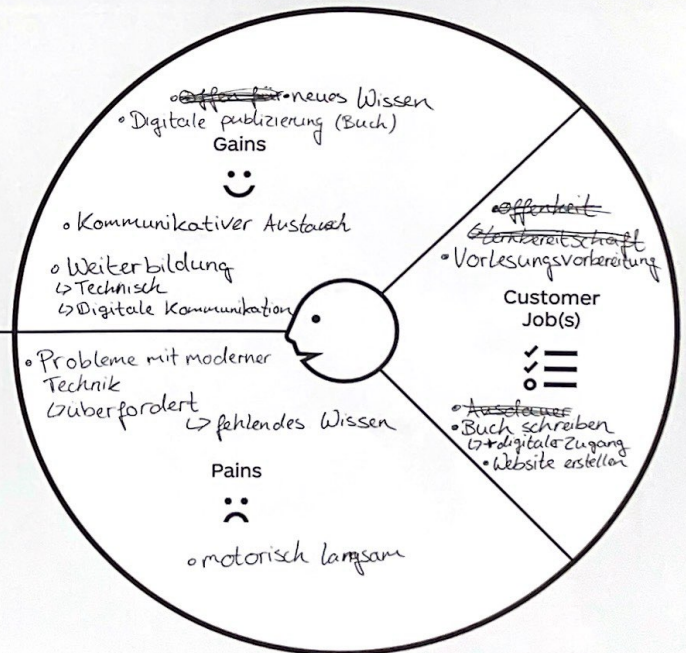 • Offen für • neues Wissen
• Digitale publizierung (Buch)
Gains
• Kommunikativer Austausch
• Weiterbildung
↳ Technisch
↳ Digitale Kommunikation
• Offenheit
↳ Lernbereitschaft
• Vorlesungsvorbereitung
Customer
Job(s)
• Ausdauer
• Buch schreiben
↳ + digitaler Zugang
• Website erstellen
• Probleme mit moderner
Technik
↳ überfordert
↳ fehlendes Wissen
Pains
• motorisch langsam